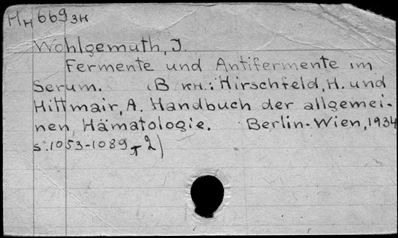 Нн 669зн
Wohlgemuth, J.
Fermente und Antifermente im
Serum. (В кн.: Hirschfeld, H. und
Hittmair, A. Handbuch der allgemei-
nen, Hämatologie. Berlin-Wien, 1934
s. 1053-1089, т 2)